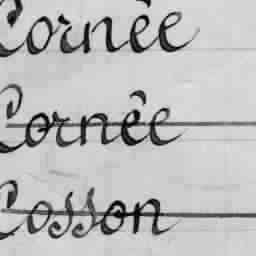 Cornée
Cornée
Cosson